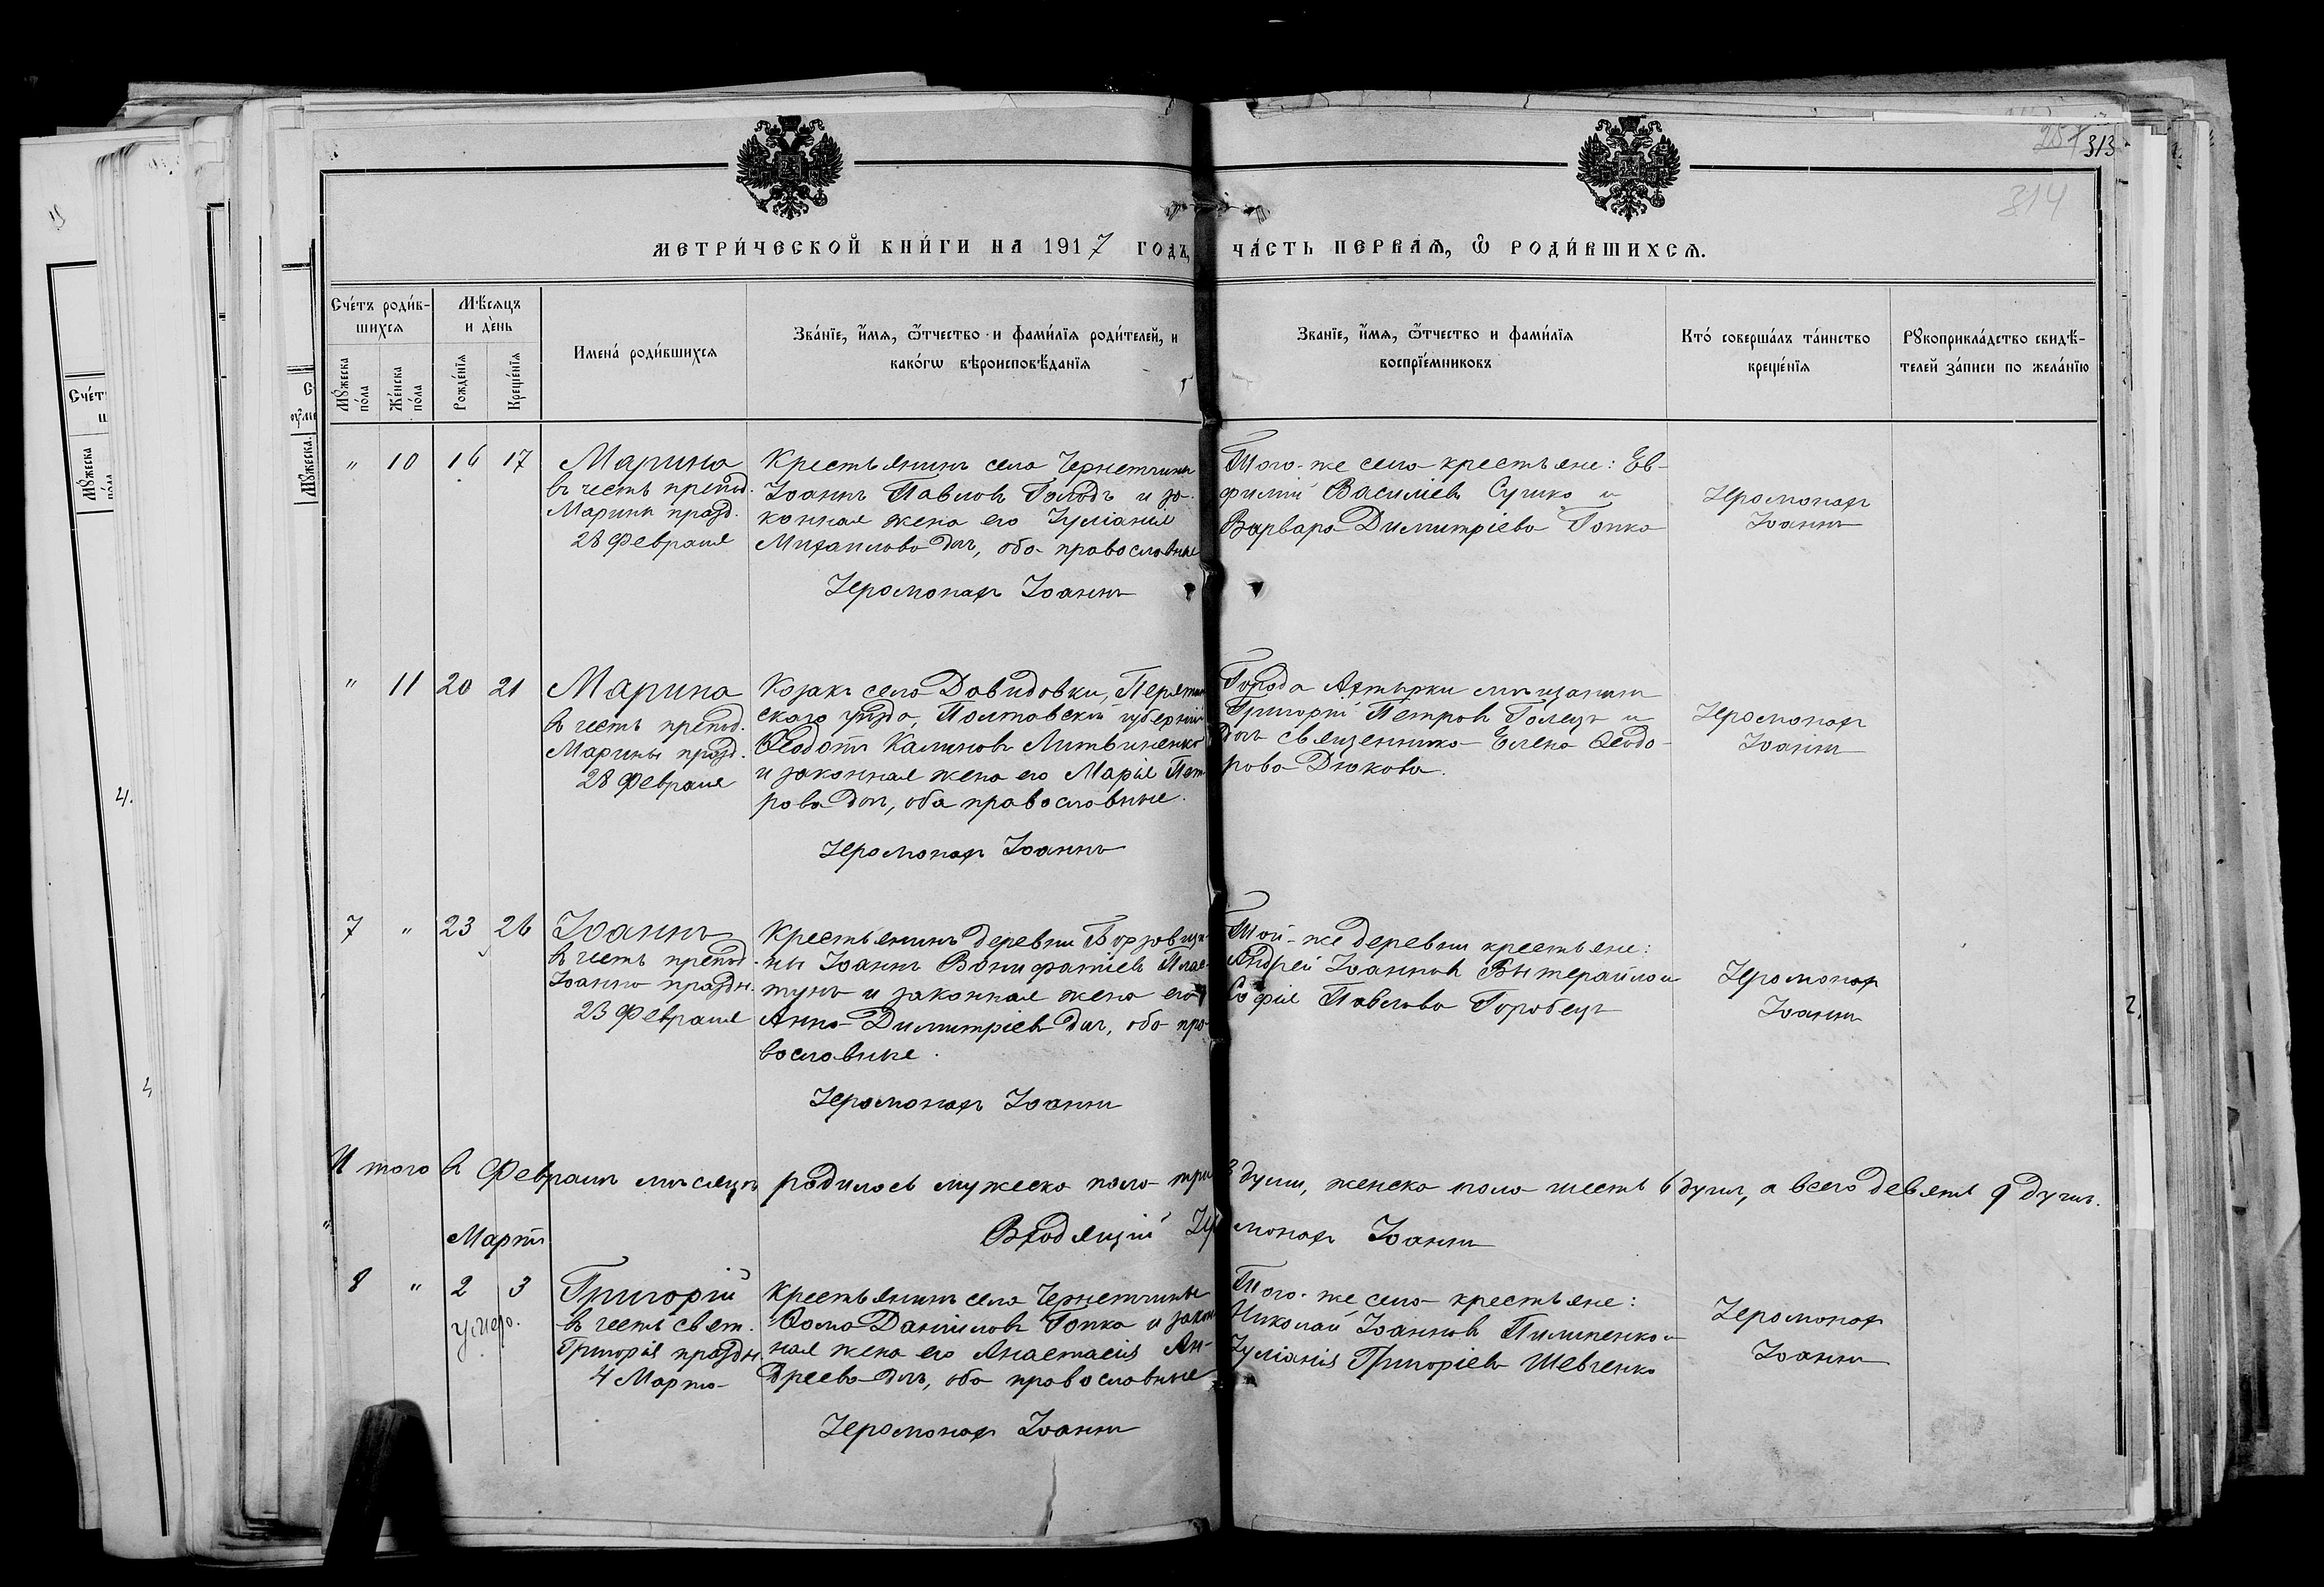 257 313
314
МЕТРИ́ЧЕСКОЙ КНИ́ГИ НА 1917 ГОДЪ, ЧА́СТЬ ПЕРВАѦ, Ѡ҆ РОДИ́ВШИХСѦ.
Сче́тъ роди́в-
шихсѧ
Мꙋ́жеска по́ла
Же́нска по́ла
Мѣ́сѧцъ
и де́нь
Рожде́нїѧ
Креще́нїѧ
Имена́ роди́вшихсѧ
Зва́нїе, и҆́мѧ, ѻ҆́тчество и фами́лїѧ роди́телей, и
како́гѡ вѣроисповѣ́данїѧ
Зва́нїе, и҆́мѧ, ѻ҆́тчество и фами́лїѧ
воспрїе́мниковъ
Кто́ соверша́лъ та́инство
креще́нїѧ
Рꙋкоприкла́дство свидѣ́-
телей за́писи по жела́нїю
" 10 16 17
Марина
въ честь препод.
Марины празд.
28 Февраля
Крестьянинъ села Чернетчины
Іоаннъ Павловъ Голодъ и за-
конная жена его Іуліанія
Михаилова доч, оба православные
Іеромонахъ Іоаннъ
Того-же села крестьяне: Ев-
фимій Василіевъ Сушко и
Варвара Димитріева Гопка
Іеромонахъ
Іоаннъ
" 11 20 21
Марина
въ честь препод.
Марины празд.
28 Февраля
Козакъ села Давидовки, Пирятин
скаго уѣзда, Полтавской губерніи
Ѳеодотъ Калиновъ Литвиненко
и законная жена его Марія Пет
рова доч, оба православные.
Іеромонахъ Іоаннъ
Города Ахтырки мѣщанинъ
Григорій Петровъ Голецъ и
дочь священника Елена Ѳеодо-
рова Дюкова.
Іеромонахъ
Іоаннъ
7 " 23 26
Іоаннъ
въ честь препод.
Іоанна праздн.
23 Февраля
Крестьянинъ деревни Борзовщи-
ны Іоаннъ Вонифатіевъ Плас-
тунъ и законная жена его
Анна Димитріева доч, оба пра-
вославные.
Іеромонахъ Іоаннъ
Той-же деревни крестьяне:
Андрей Іоанновъ Вытерайло и
Софія Павлова Горобецъ
Іеромонахъ
Іоаннъ
Итого въ Февралѣ мѣсяцѣ родилось мужеска пола три 3 души, женска пола шесть 6 душъ, а всего девять 9 душъ.
Входящій Іеромонахъ Іоаннъ
Мартъ
8 " 2 3
умеръ.
Григорій
въ честь свят.
Григорія праздн.
4 Марта
Крестьянинъ села Чернетчины
Ѳома Даніиловъ Гопка и закон
ная жена его Анастасія Ан-
дреева доч, оба православные
Іеромонахъ Іоаннъ
Того-же села крестьяне:
Николай Іоанновъ Пилипенко и
Іуліанія Григоріева Шевченко
Іеромонахъ
Іоаннъ